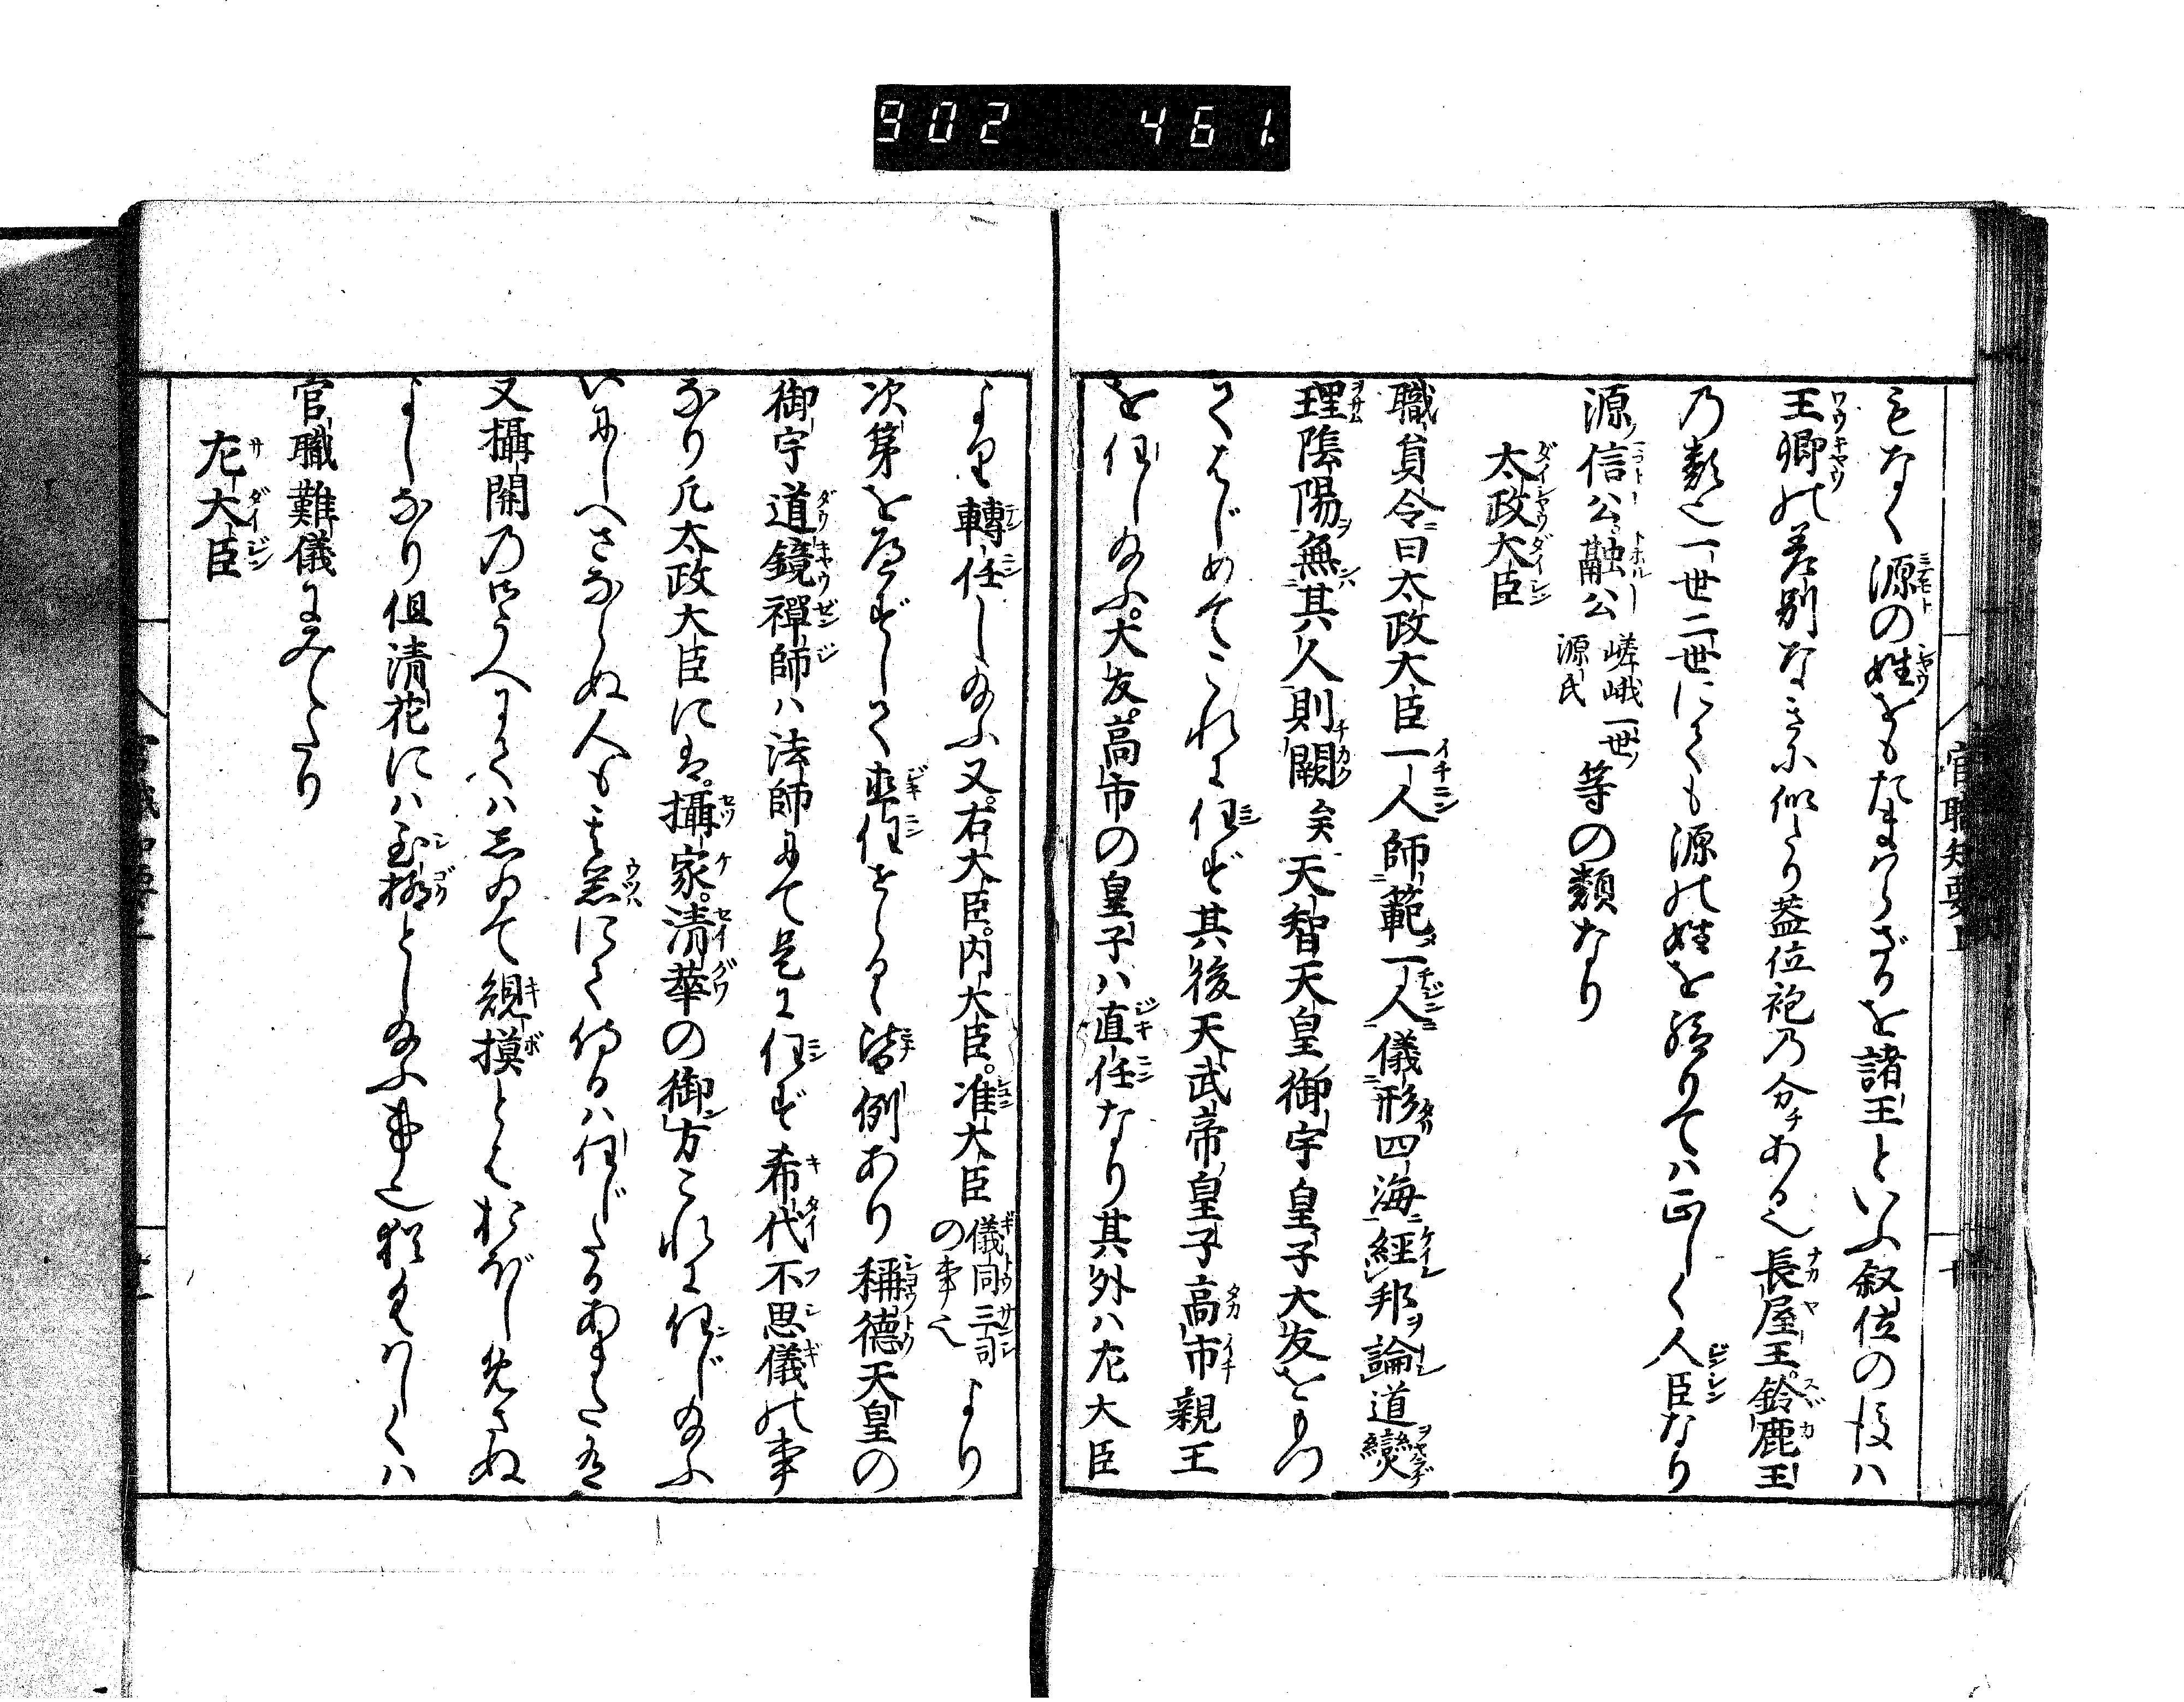 902 461
もなく源の姓をもたまはらざるを諸王といふ叙位の後ハ
王卿の差別なきに似たり蓋位袍乃分チある也長屋王鈴鹿王
乃類也一世二世にても源の姓を給りてハ正しく人臣なり
源信公融公嵯峨一世ノ源氏等の類なり
太政大臣
職員令ニ曰太政大臣一人師範一人儀形四海經邦論道燮
理陰陽無其人則闕矣天智天皇御宇皇子大友をもつ
てはじめてこれに任ず其後天武帝皇子高市親王
を任し給ふ。大友。高市の皇子ハ直任なり其外ハ左大臣
より轉任し給ふ又。右大臣。内大臣。准大臣儀同三司の事也より
次第を歴ずして直任せらるゝ皆例あり稱德天皇の
御宇道鏡禪師ハ法師にて是に任ず希代不思儀の事
なり凡太政大臣にハ。攝家。清華の御方これに任じ給ふ
いにしへさならぬ人も其器にて侍るハ任じたるあまた有
又攝関乃御うへにてハしゐて規摸とはおぼしめさぬ
よしなり但清花にハ至極とし給ふ事也猶くはしくハ
官職難儀にみへたり
左大臣
官職知要上